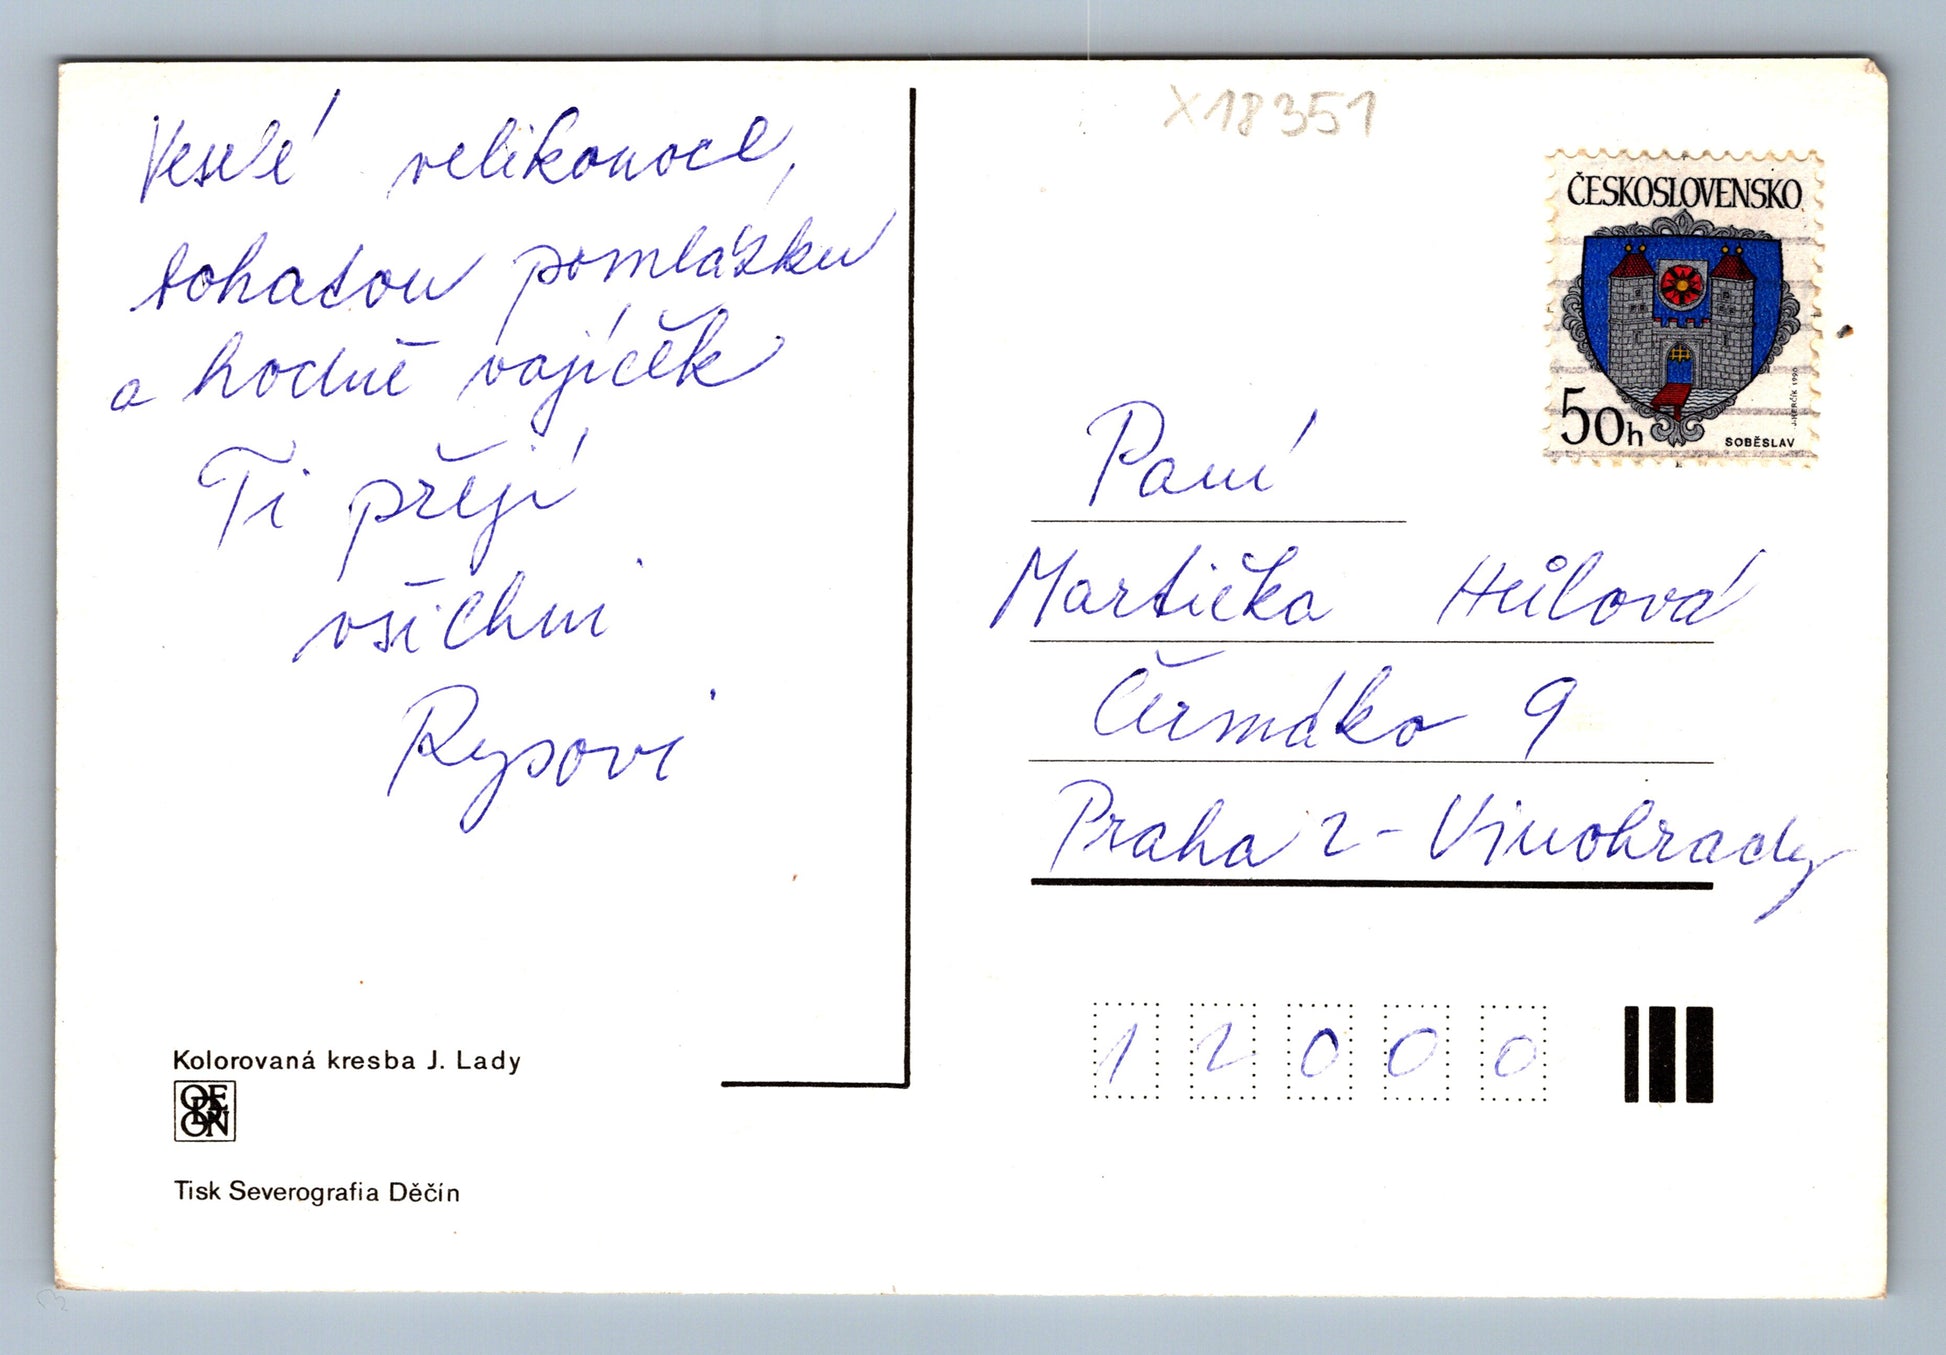 Veselé velikonoce,
bohatou pomlázku
a hodně vajíček
Ti přejí
všichni
Rysovi
Kolorovaná kresba J. Lady
ODEON
Tisk Severografia Děčín
X18351
ČESKOSLOVENSKO
50h
SOBĚSLAV
J.HERČÍK 1990
Paní
Martička Hůlová
Čermáko 9
Praha 2 - Vinohrady
12000